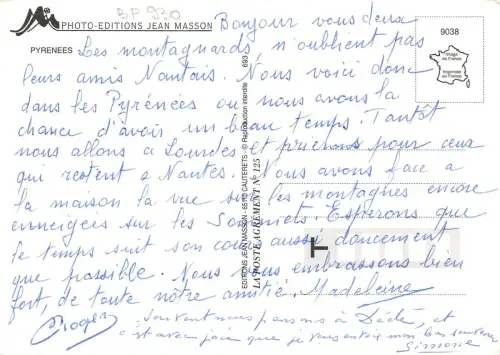 BP 930
PHOTO-EDITIONS JEAN MASSON
PYRENEES
9038
Image de France
Imprimée en France
693
EDITIONS JEAN MASSON - 65110 CAUTERETS - © Reproduction interdite
LA POSTE AGREMENT N° 125
Bonjour vous deux
Les montagnards n'oublient pas
leurs amis Nantais. Nous voici donc
dans les Pyrénées ou nous avons la
chance d'avoir un beau temps. Tantôt
nous allons a Lourdes et prierons pour ceux
qui restent a Nantes. Nous avons face a
la maison la vue sur les montagnes encore
enneigées sur les Sommets. Esperons que
le temps suit son cours aussi doucement
que possible. Nous vous embrassons bien
fort, de toute nôtre amitié. Madeleine
Roger
Souvent nous pensons à Dédé, et
c'est avec joie que je vous
Simone